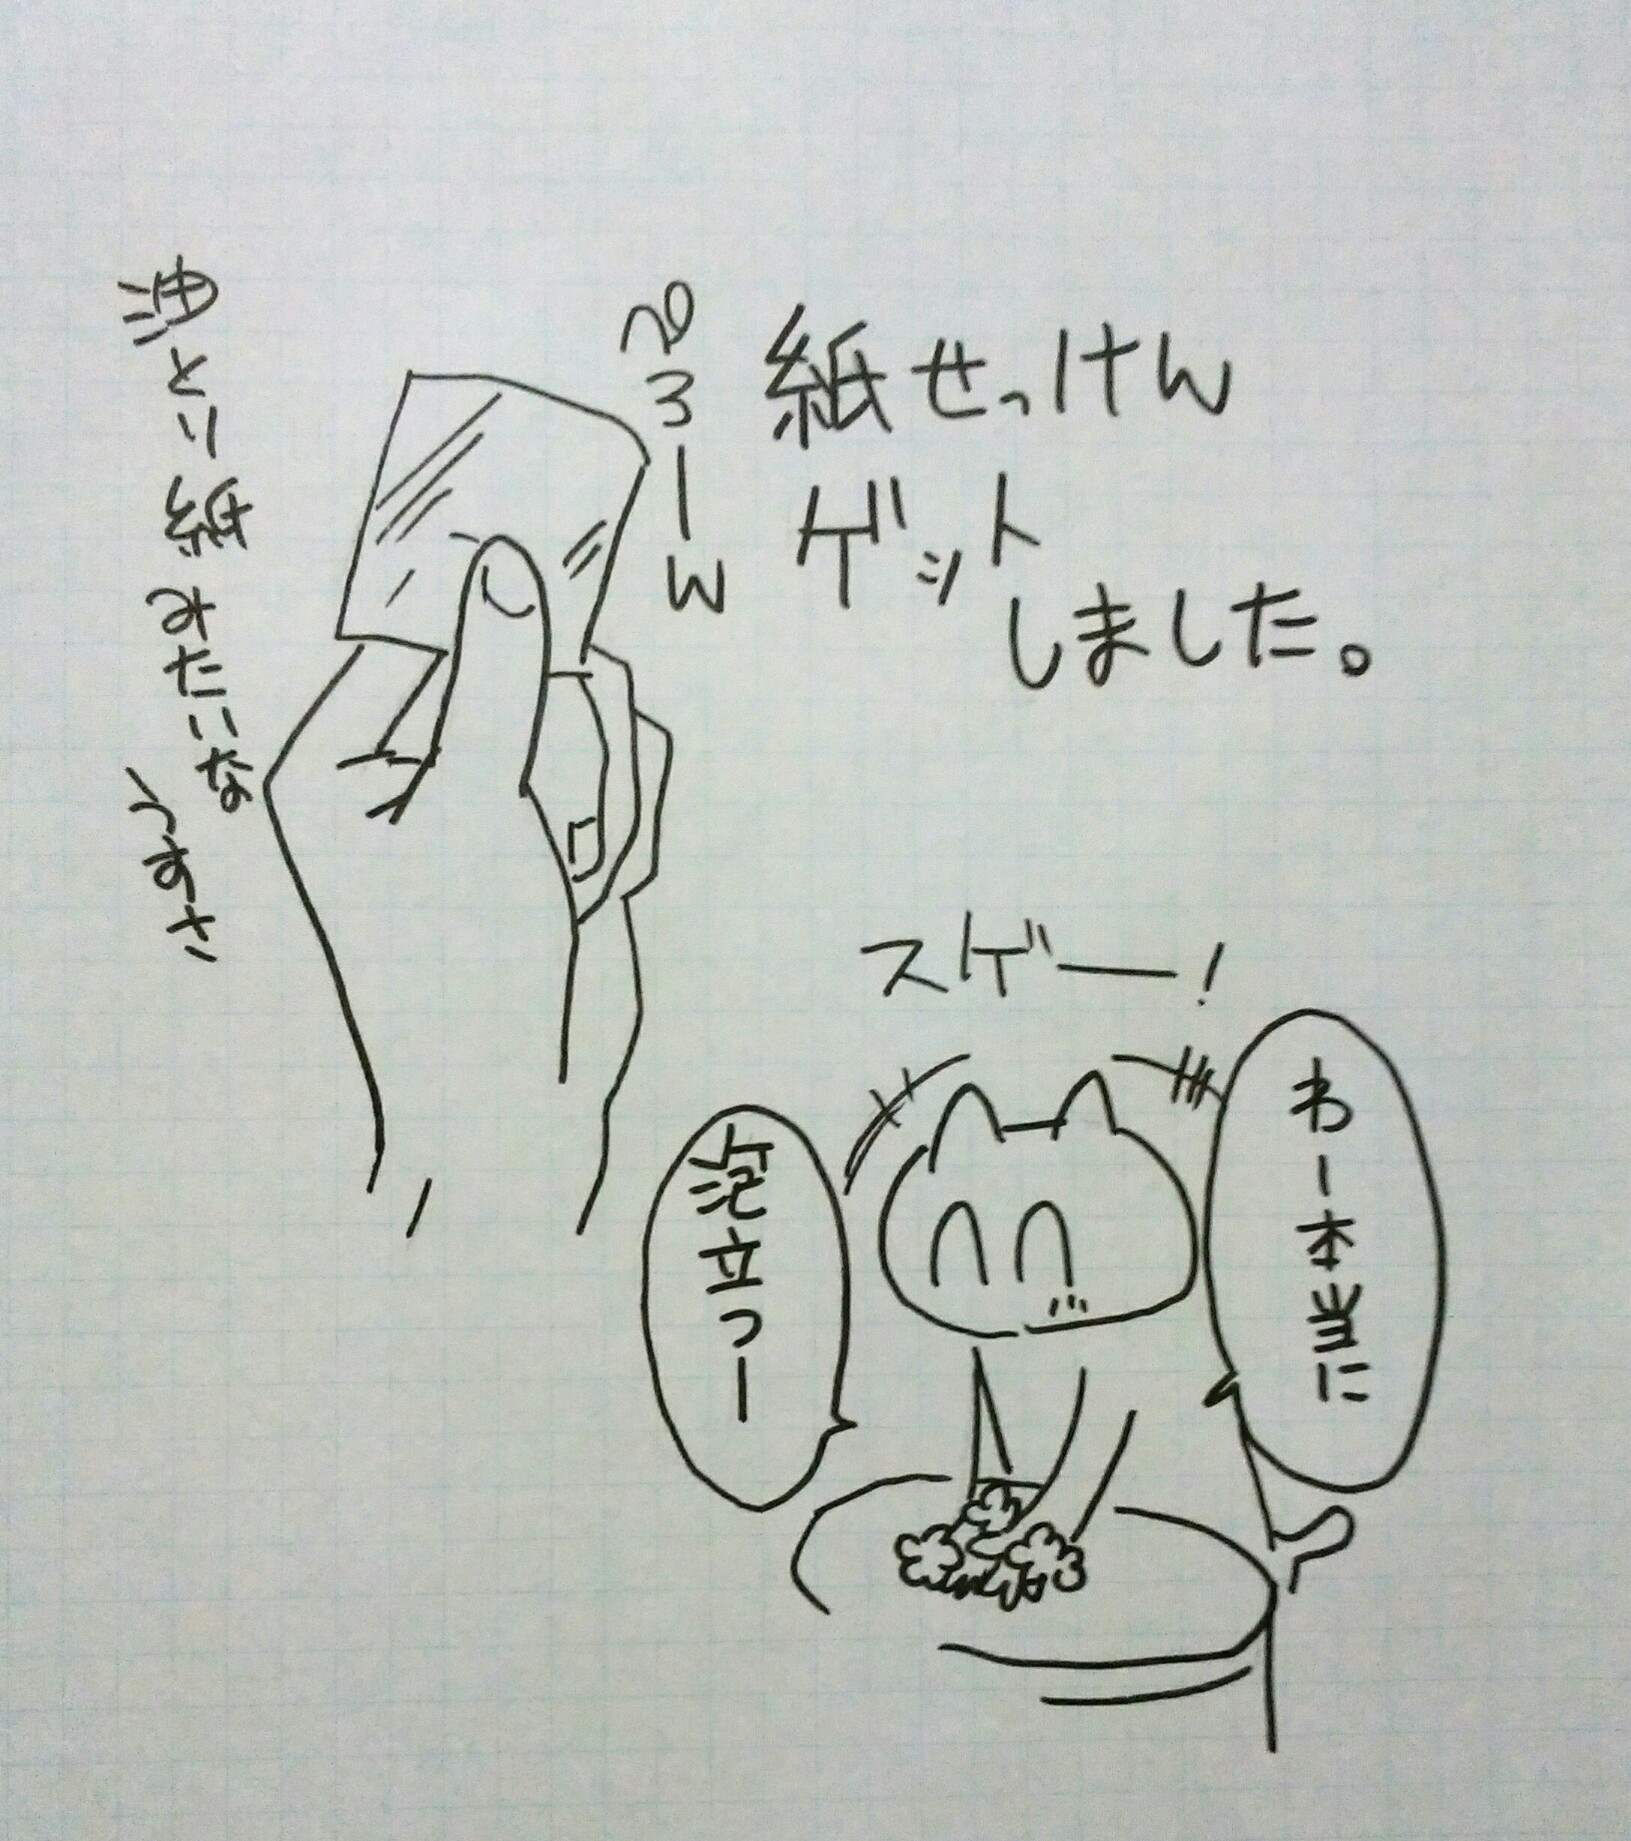 紙せっけん
ゲット
しました。
ペろーん
油とり紙みたいな
うすさ
スゲー！
わー本当に
泡立つー